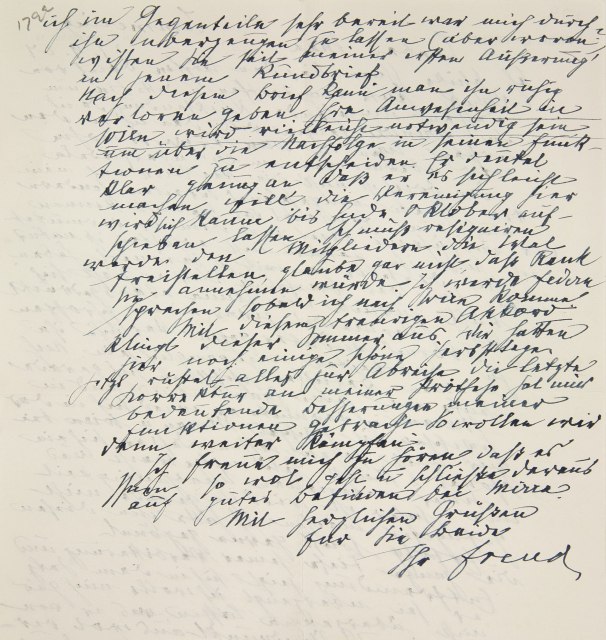 ich im Gegenteile sehr bereit war mich durch
ihn überzeugen zu lassen (aber wovon?
wissen Sie seit meiner ersten Äußerung
in jenem Rundbrief
Nach diesem Brief kann man ihn ruhig
verloren geben Ihre Anwesenheit in
Wien wird vielleicht notwendig sein
um über die Nachfolge in seinen Funk-
tionen zu entscheiden. Er deutet
klar genug an daß er es sich leicht
machen will die Vereinigung hier
wird sich kaum bis Ende Oktober auf-
schieben lassen. Ich muß resignieren
werde den Mitgliedern die Wal
freistellen, glaube gar nicht daß Rank
sie annehmen würde. Ich werde Federn
sprechen sobald ich nach Wien komme
Mit diesem traurigen Akkord
klingt dieser Sommer aus. Wir hatten
hier noch einige schöne Herbsttage
jetzt rüstet alles zur Abreise die letzte
Korrektur an meiner Prothese hat mir
bedeutende Besserungen meiner
Funktionen gebracht So wollen wir
denn weiter kämpfen.
Ich freue mich zu hören daß es
Ihnen so wol geht u schließe daraus
auf gutes Befinden bei Mirra.
Mit herzlichen Grüßen
für Sie beide
Ihr Freud